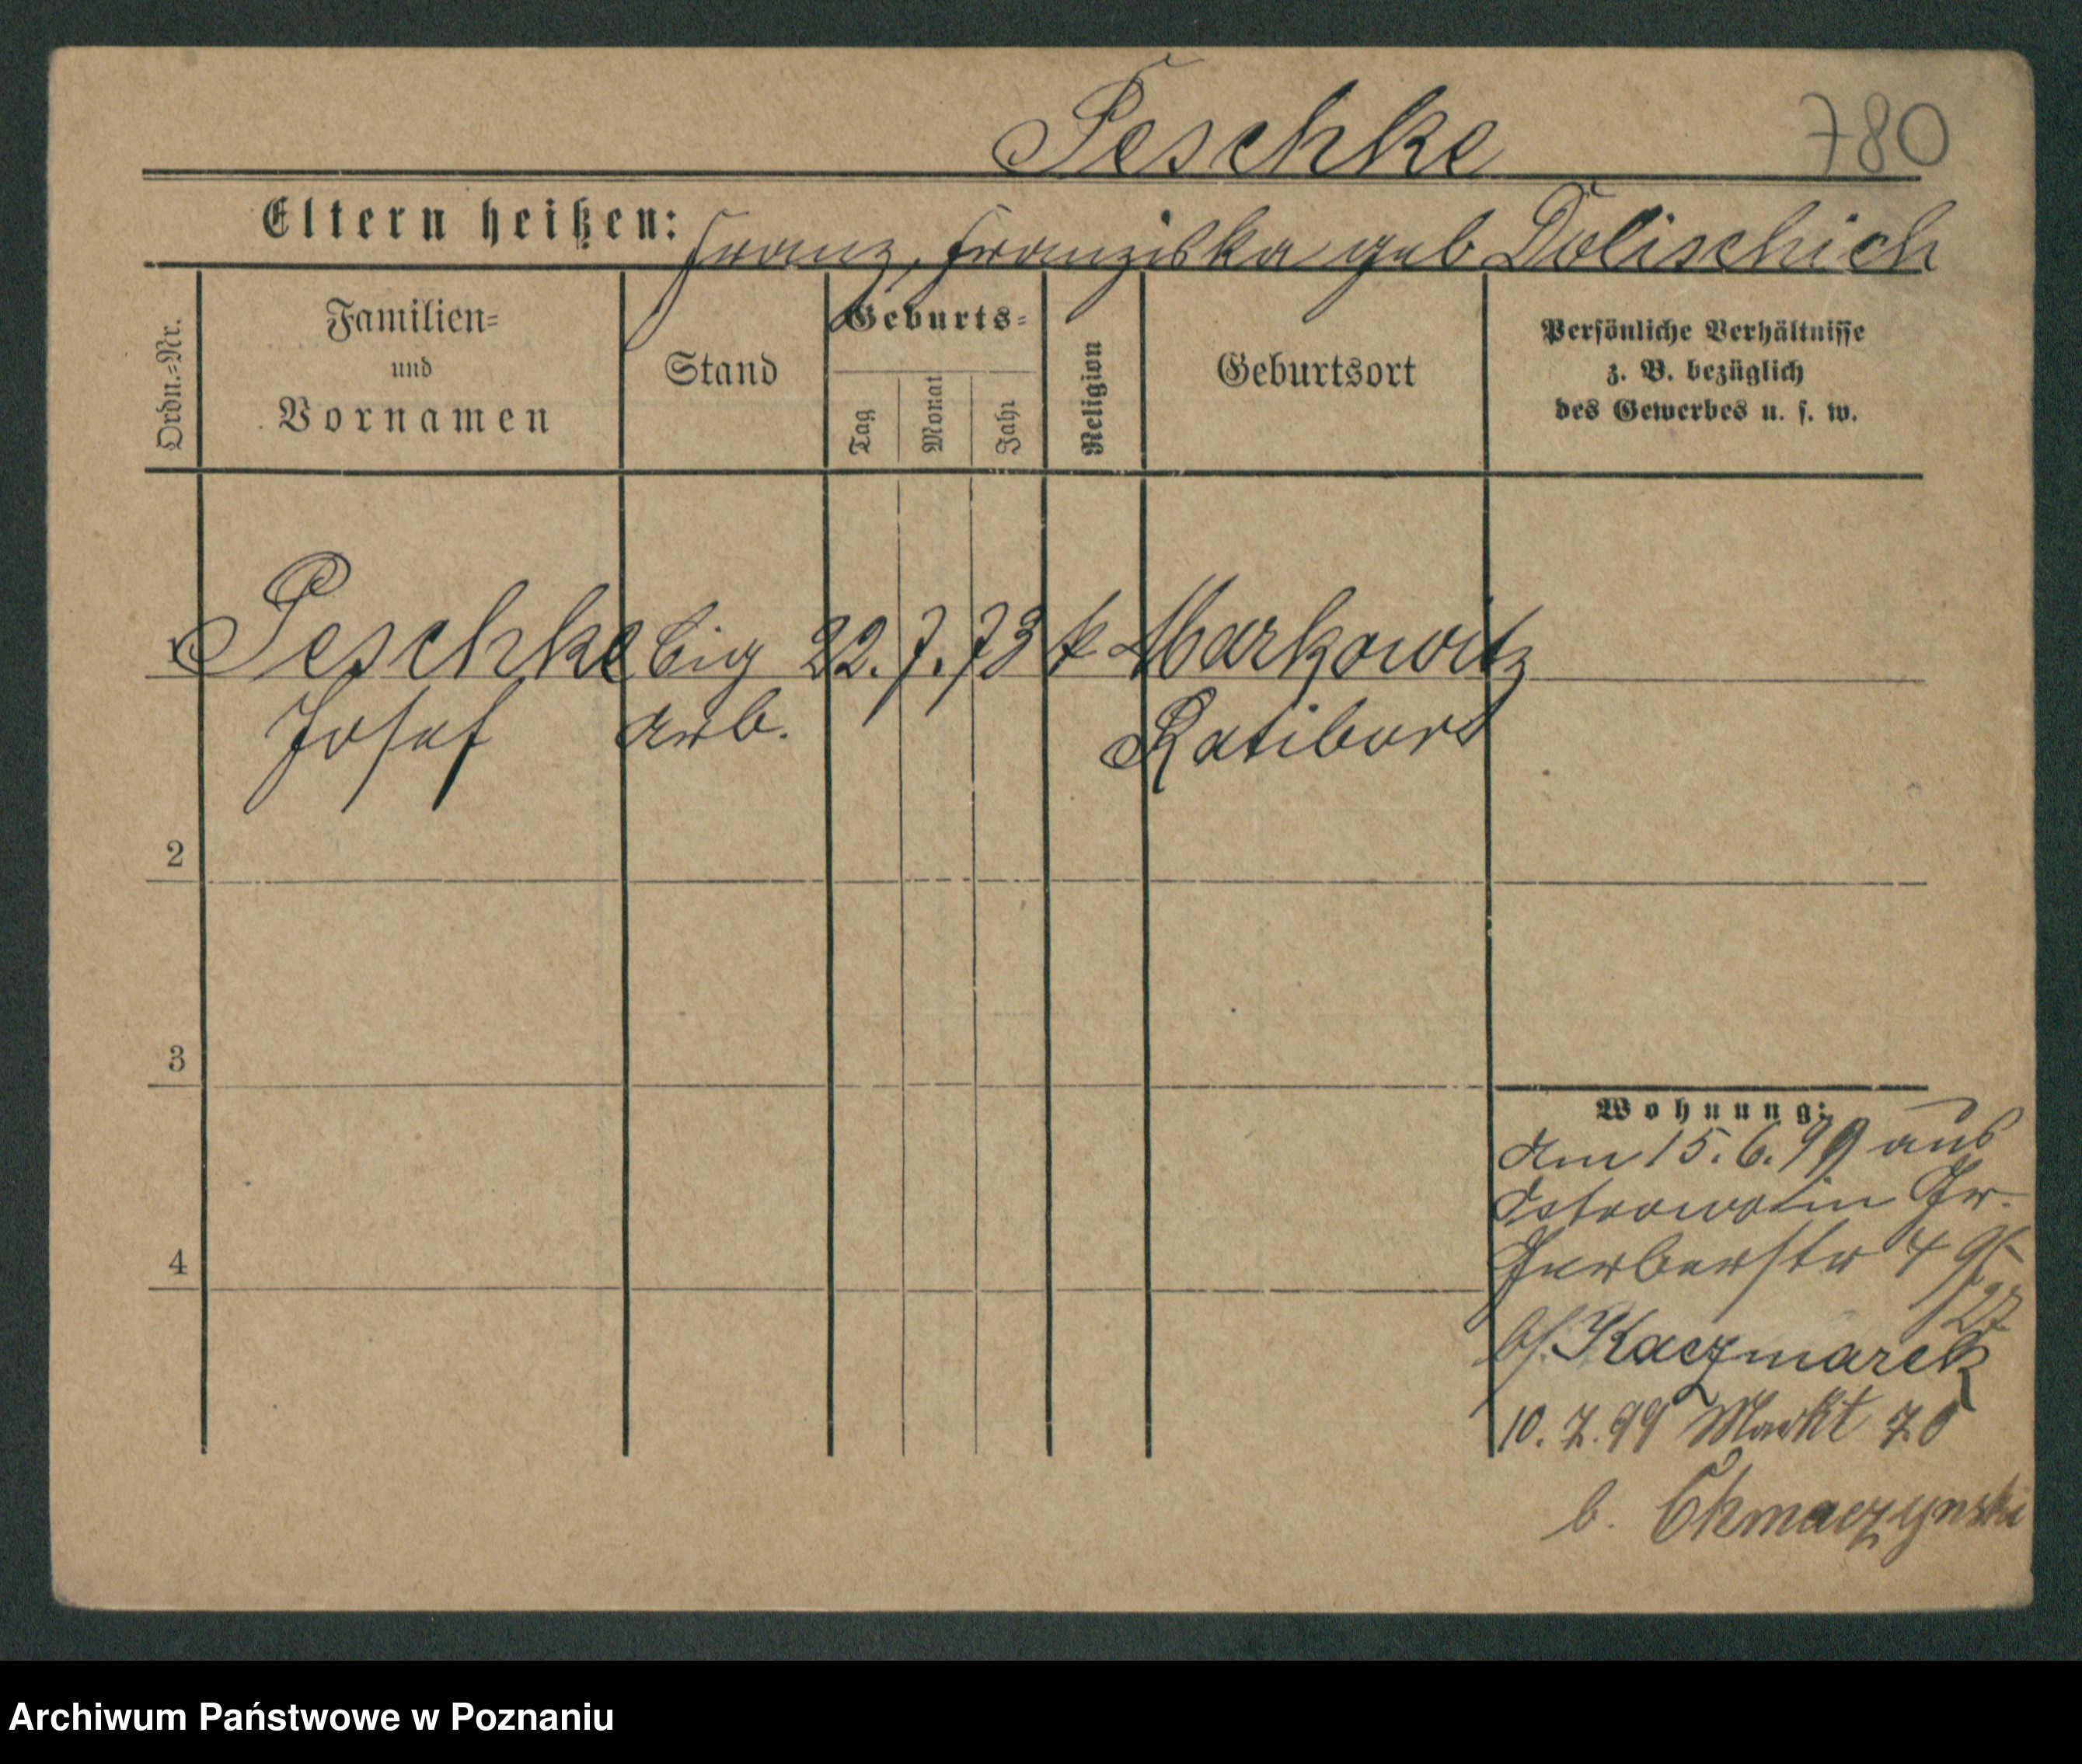 Peschke 780
Eltern heißen: Franz, Franziska geb Dolischich
Ordn.-Nr.
Familien-
und
Vornamen
Stand
Geburts-
Tag
Monat
Jahr
Religion
Geburtsort
Persönliche Verhältnisse
z. B. bezüglich
des Gewerbes u. s. w.
Peschke Cig 22. 7. 73 k Markowitz
Josef Arb. Ratibor
2
3
4
Wohnung:
Am 15. 6. 99 aus
Ostrowo in Gr.
Gerberstr 4
b/. Kaczmarek
10. 7. 99 Markt 70
b. Chmaczynski
Archiwum Państwowe w Poznaniu